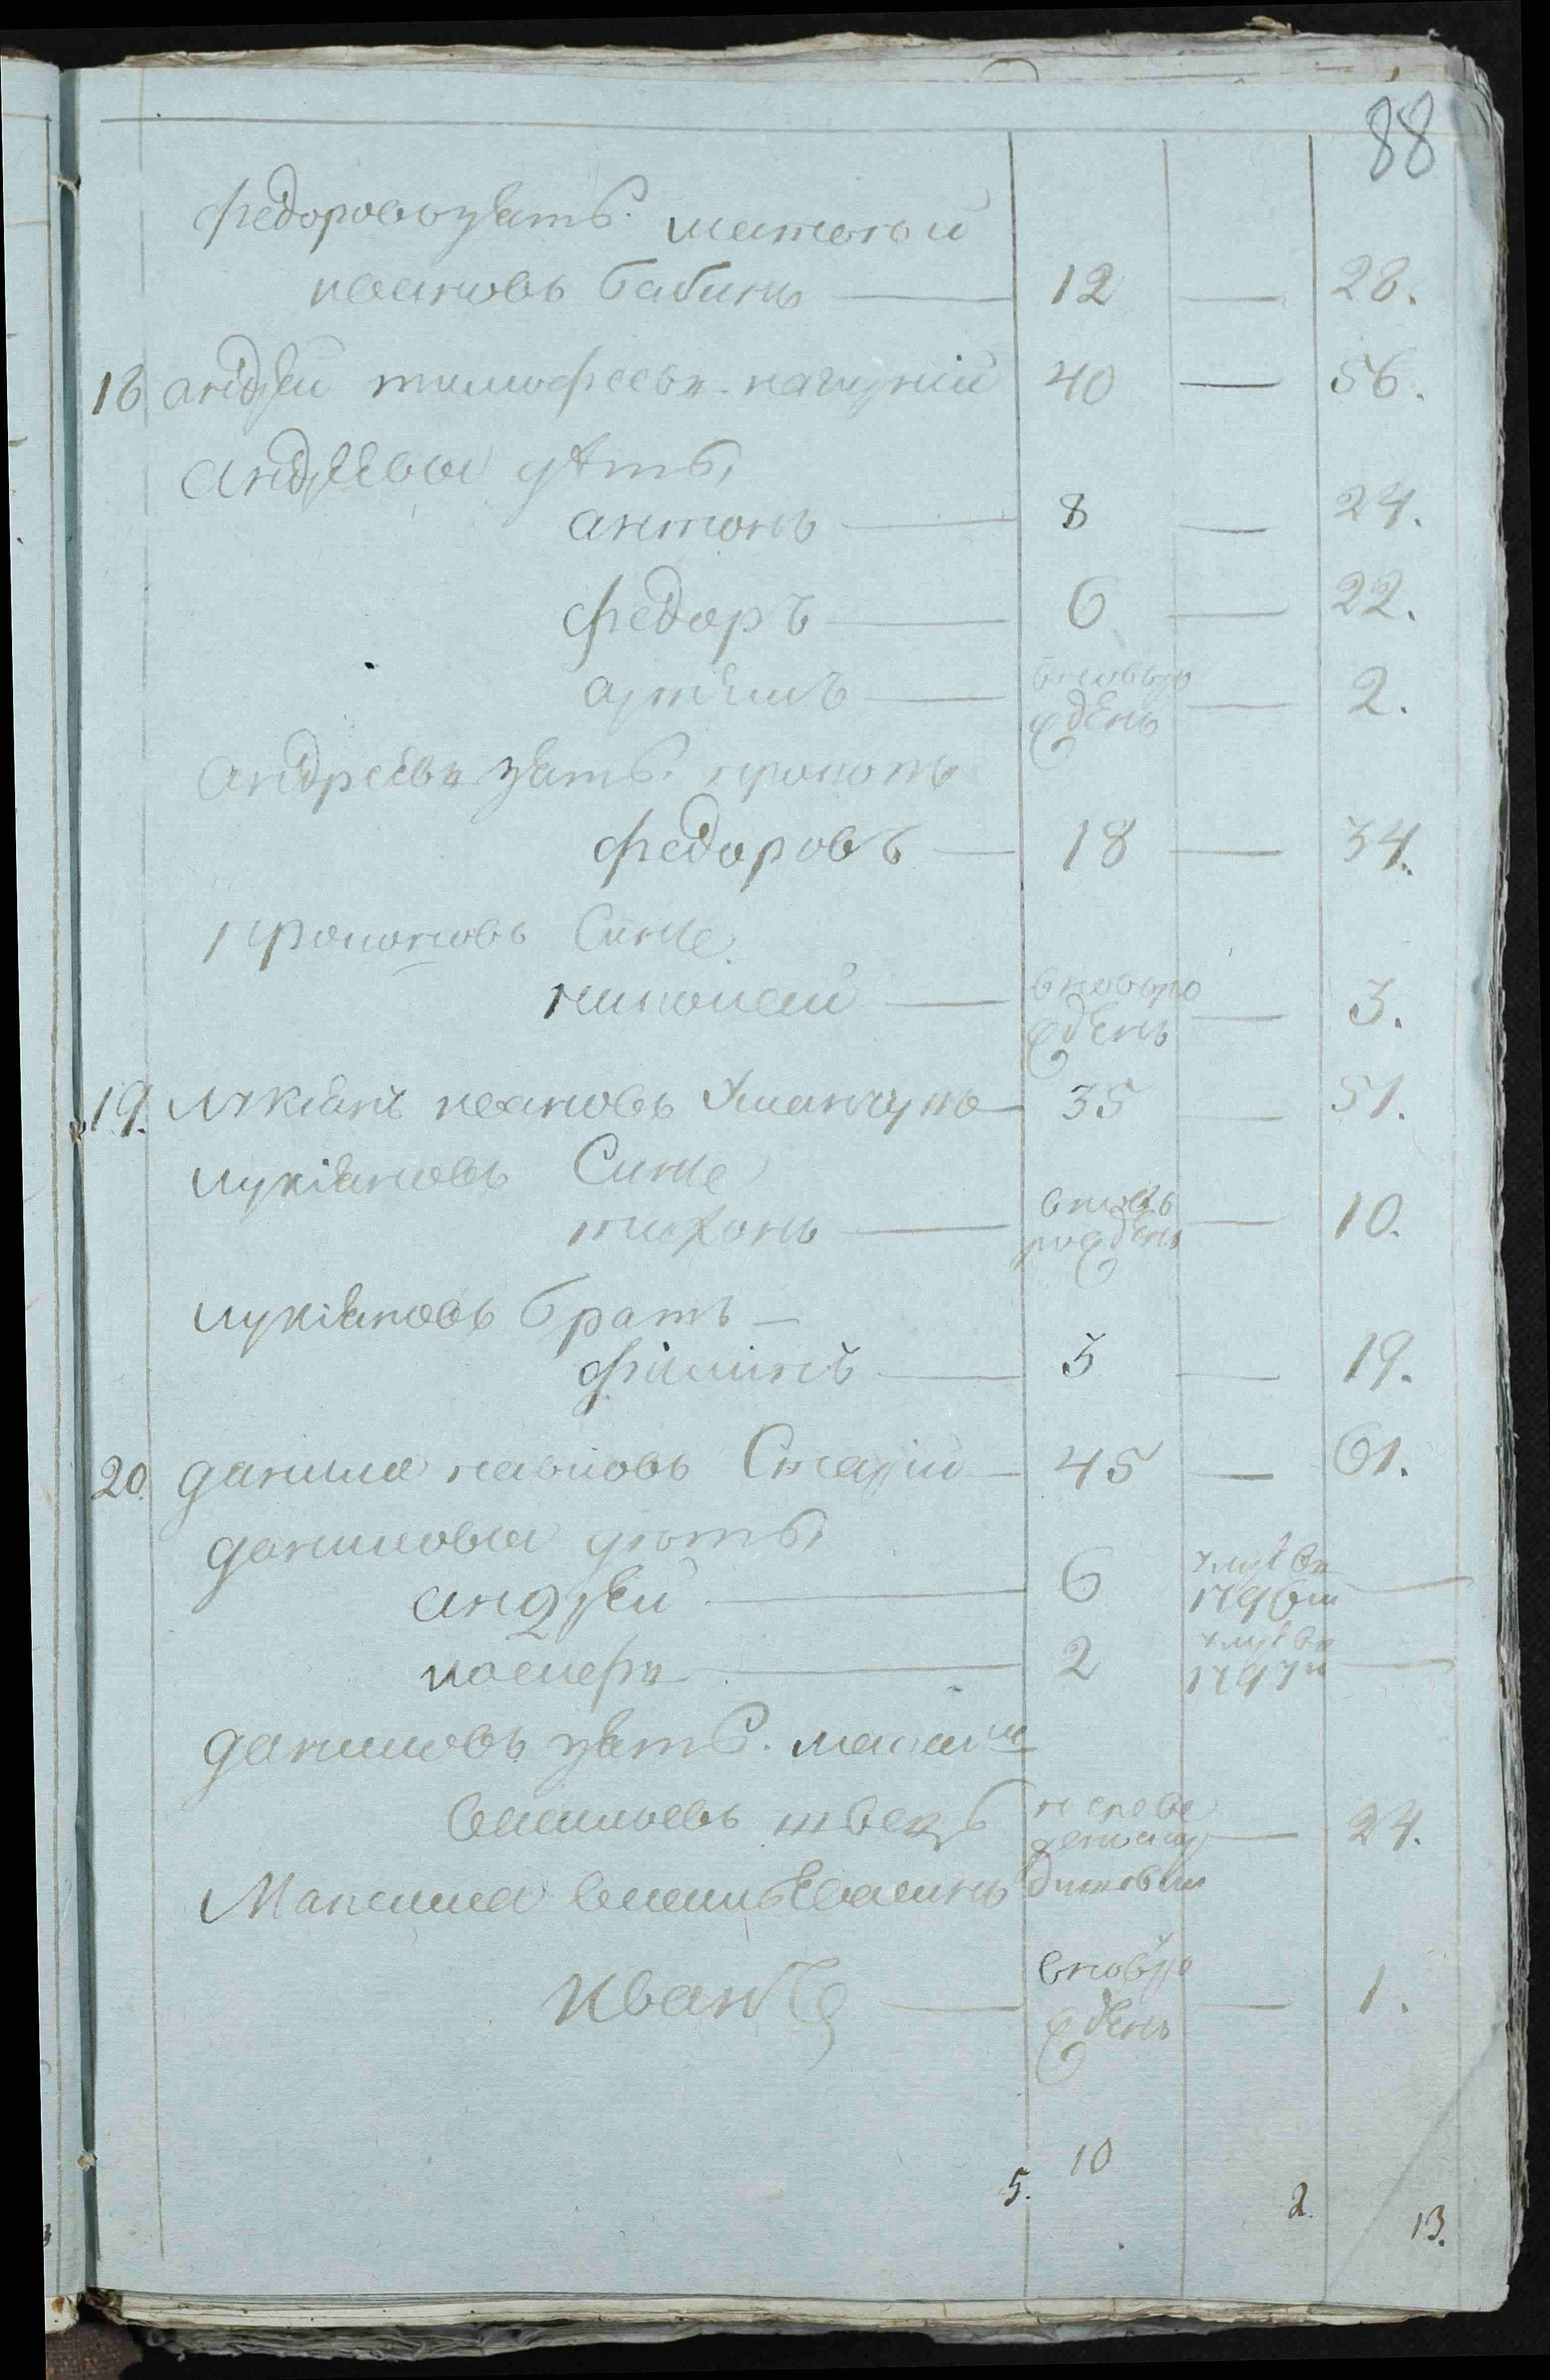 88
федоровъ зять матвей
ивановъ бабинъ — 12 — 28.
18 андрей тимофеевъ нагурній 40 — 56.
андреевы дѣти
антонъ — 8 — 24.
федоръ — 6 — 22.
артемъ — вновь ро
жденъ — 2.
андреевъ зять прокопъ
федоровъ — 18 — 34.
прокоповъ Синъ
николай — вновь ро
жденъ — 3.
19. лукіанъ ивановъ 35 — 51.
лукіановъ Синъ
тихонъ — вновь
рожденъ — 10.
лукіановъ братъ —
филипъ — 3 — 19.
20. данило павловъ Старій — 45 — 61.
даниловы дѣти
андрей — 6 умре въ
1796м —
иосифъ — 2 умре въ
1797м —
даниловъ зять максимъ
васильевъ швецъ — 24.
Максима васильева синъ
иванъ — вновь ро
жденъ — 1.
10
5. 2. 13.